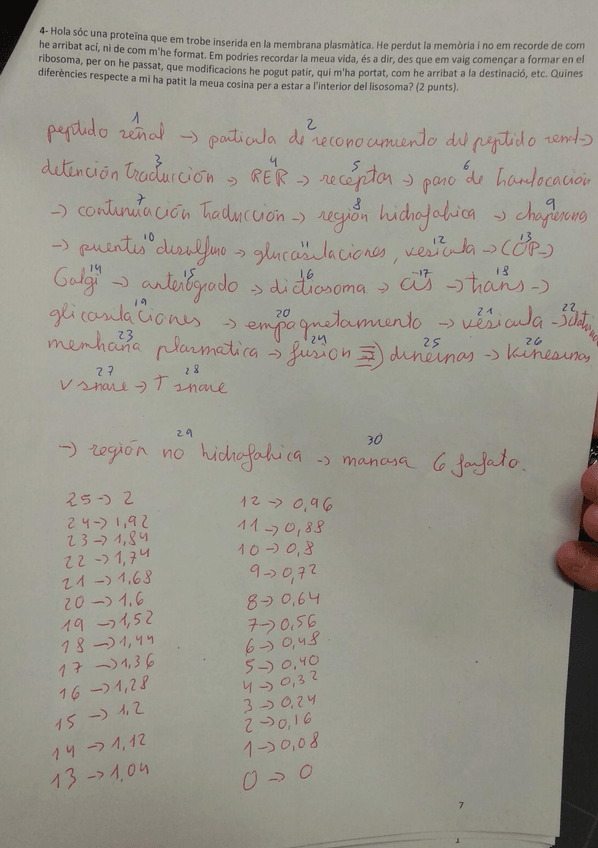 4- Hola sóc una proteïna que em trobe inserida en la membrana plasmàtica. He perdut la memòria i no em recorde de com
he arribat ací, ni de com m'he format. Em podries recordar la meua vida, és a dir, des que em vaig començar a formar en el
ribosoma, per on he passat, que modificacions he pogut patir, qui m'ha portat, com he arribat a la destinació, etc. Quines
diferències respecte a mi ha patit la meua cosina per a estar a l'interior del lisosoma? (2 punts).
1 2
peptido señal → particula de reconocimiento del peptido señal →
3 4 5 6
detención traducción → RER → receptor → poro de translocación
7 8 9
→ continuación traducción → región hidrofobica → chaperonas
10 11 12 13
→ puentes disulfuro → glucosilaciones, vesicula → COP →
14 15 16 17 18
Golgi → anterogrado → dictiosoma → cis → trans →
19 20 21 22
glicosilaciones → empaquetamiento → vesicula →
23 24 25 26
membrana plasmatica → fusion dineinas → kinesinas
27 28
V snare → T snare
29 30
→ región no hidrofobica → manosa 6 fosfato.
25 → 2 12 → 0,96
24 → 1,92 11 → 0,88
23 → 1,84 10 → 0,8
22 → 1,74 9 → 0,72
21 → 1,68 8 → 0,64
20 → 1,6 7 → 0,56
19 → 1,52 6 → 0,48
18 → 1,44 5 → 0,40
17 → 1,36 4 → 0,32
16 → 1,28 3 → 0,24
15 → 1,2 2 → 0,16
14 → 1,12 1 → 0,08
13 → 1,04 0 → 0
7
1